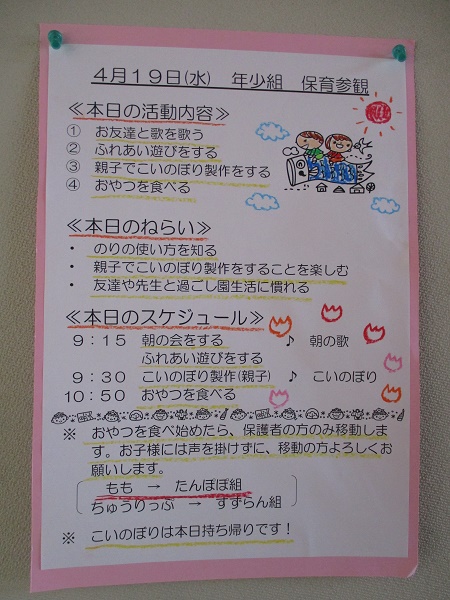 4月19日(水)　年少組　保育参観
≪本日の活動内容≫
①　お友達と歌を歌う
②　ふれあい遊びをする
③　親子でこいのぼり製作をする
④　おやつを食べる
≪本日のねらい≫
・　のりの使い方を知る
・　親子でこいのぼり製作をすることを楽しむ
・　友達や先生と過ごし園生活に慣れる
≪本日のスケジュール≫
9：15　朝の会をする　♪　朝の歌
ふれあい遊びをする
9：30　こいのぼり製作(親子)　♪　こいのぼり
10：50　おやつを食べる
※　おやつを食べ始めたら、保護者の方のみ移動しま
す。お子様には声を掛けずに、移動の方よろしくお
願いします。
もも　→　たんぽぽ組
ちゅうりっぷ　→　すずらん組
※　こいのぼりは本日持ち帰りです！